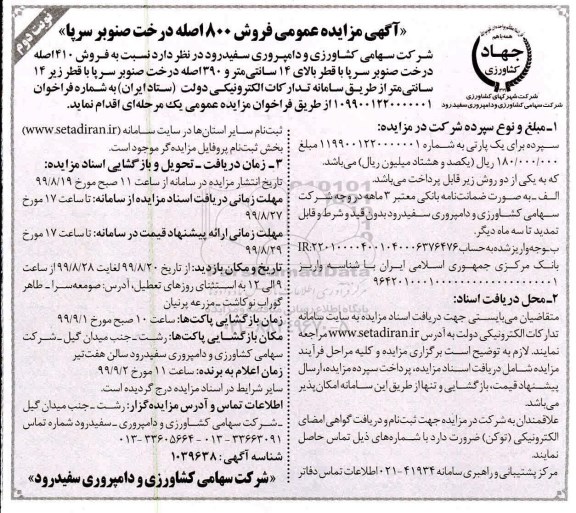 نوبت دوم
«آگهی مزایده عمومی فروش ۸۰۰ اصله درخت صنوبر سرپا»
جهاد کشاورزی
شرکت شهرکهای کشاورزی
شرکت سهامی کشاورزی و دامپروری سفیدرود
شرکت سهامی کشاورزی و دامپروری سفیدرود در نظر دارد نسبت به فروش ۴۱۰ اصله
درخت صنوبر سرپا با قطر بالای ۱۴ سانتی‌متر و ۳۹۰ اصله درخت صنوبر سرپا با قطر زیر ۱۴
سانتی‌متر از طریق سامانه تدارکات الکترونیکی دولت (ستاد ایران) به شماره فراخوان
۱۰۹۹۰۰۱۲۲۰۰۰۰۰۰۱ از طریق فراخوان مزایده عمومی یک مرحله‌ای اقدام نماید.
۱-مبلغ و نوع سپرده شرکت در مزایده:
سپرده برای یک پارتی به شماره ۱۱۹۹۰۰۱۲۲۰۰۰۰۰۰۱ مبلغ
۱۸۰/۰۰۰/۰۰۰ ریال (یکصد و هشتاد میلیون ریال) می‌باشد.
که به یکی از دو روش زیر قابل پرداخت می‌باشد.
الف-به صورت ضمانت‌نامه بانکی معتبر ۳ ماهه در وجه شرکت
سهامی کشاورزی و دامپروری سفیدرود بدون قید و شرط و قابل
تمدید تا سه ماه دیگر.
ب-وجه واریز شده به حساب IR:۲۲۰۱۰۰۰۰۴۰۰۱۰۴۰۰۰۶۳۷۶۴۷۶
بانک مرکزی جمهوری اسلامی ایران با شناسه واریز
۲-محل دریافت اسناد:
متقاضیان می‌بایستی جهت دریافت اسناد مزایده به سایت سامانه
تدارکات الکترونیکی دولت به آدرس www.setadiran.ir مراجعه
نمایند. لازم به توضیح است برگزاری مزایده و کلیه مراحل فرآیند
مزایده شامل دریافت اسناد مزایده، پرداخت سپرده مزایده، ارسال
پیشنهاد قیمت، بازگشایی و تنها از طریق این سامانه امکان‌پذیر
می‌باشد.
علاقمندان به شرکت در مزایده جهت ثبت‌نام و دریافت گواهی امضای
الکترونیکی (توکن) ضرورت دارد با شماره‌های ذیل تماس حاصل
نمایند.
مرکز پشتیبانی و راهبری سامانه ۴۱۹۳۴-۰۲۱ اطلاعات تماس دفاتر
ثبت‌نام سایر استان‌ها در سایت سامانه (www.setadiran.ir)
بخش ثبت‌نام پروفایل مزایده‌گر موجود است.
۳- زمان دریافت - تحویل و بازگشایی اسناد مزایده:
تاریخ انتشار مزایده در سامانه از ساعت ۱۱ صبح مورخ ۹۹/۸/۱۹
مهلت زمانی دریافت اسناد مزایده از سامانه: تا ساعت ۱۷ مورخ
۹۹/۸/۲۷
مهلت زمانی ارائه پیشنهاد قیمت در سامانه: تا ساعت ۱۷ مورخ
۹۹/۸/۲۹
تاریخ و مکان بازدید: از تاریخ ۹۹/۸/۲۰ لغایت ۹۹/۸/۲۸ از ساعت
۹ الی ۱۲ به استثنای روزهای تعطیل، آدرس: صومعه‌سرا - طاهر
گوراب نوکاشت - مزرعه پرنیان
زمان بازگشایی پاکت‌ها: ساعت ۱۰ صبح مورخ ۹۹/۹/۱
مکان بازگشایی پاکت‌ها: رشت - جنب میدان گیل - شرکت
سهامی کشاورزی و دامپروری سفیدرود سالن هفت‌تیر
زمان اعلام به برنده: ساعت ۱۱ مورخ ۹۹/۹/۲
سایر شرایط در اسناد مزایده درج گردیده است.
اطلاعات تماس و آدرس مزایده‌گزار: رشت - جنب میدان گیل
-شرکت سهامی کشاورزی و دامپروری - سفیدرود شماره تماس
۳۳۶۶۳۰۹۱-۰۱۳ - ۳۳۶۰۵۶۶۴-۰۱۳
شناسه آگهی: ۱۰۳۹۶۳۸
«شرکت سهامی کشاورزی و دامپروری سفیدرود»